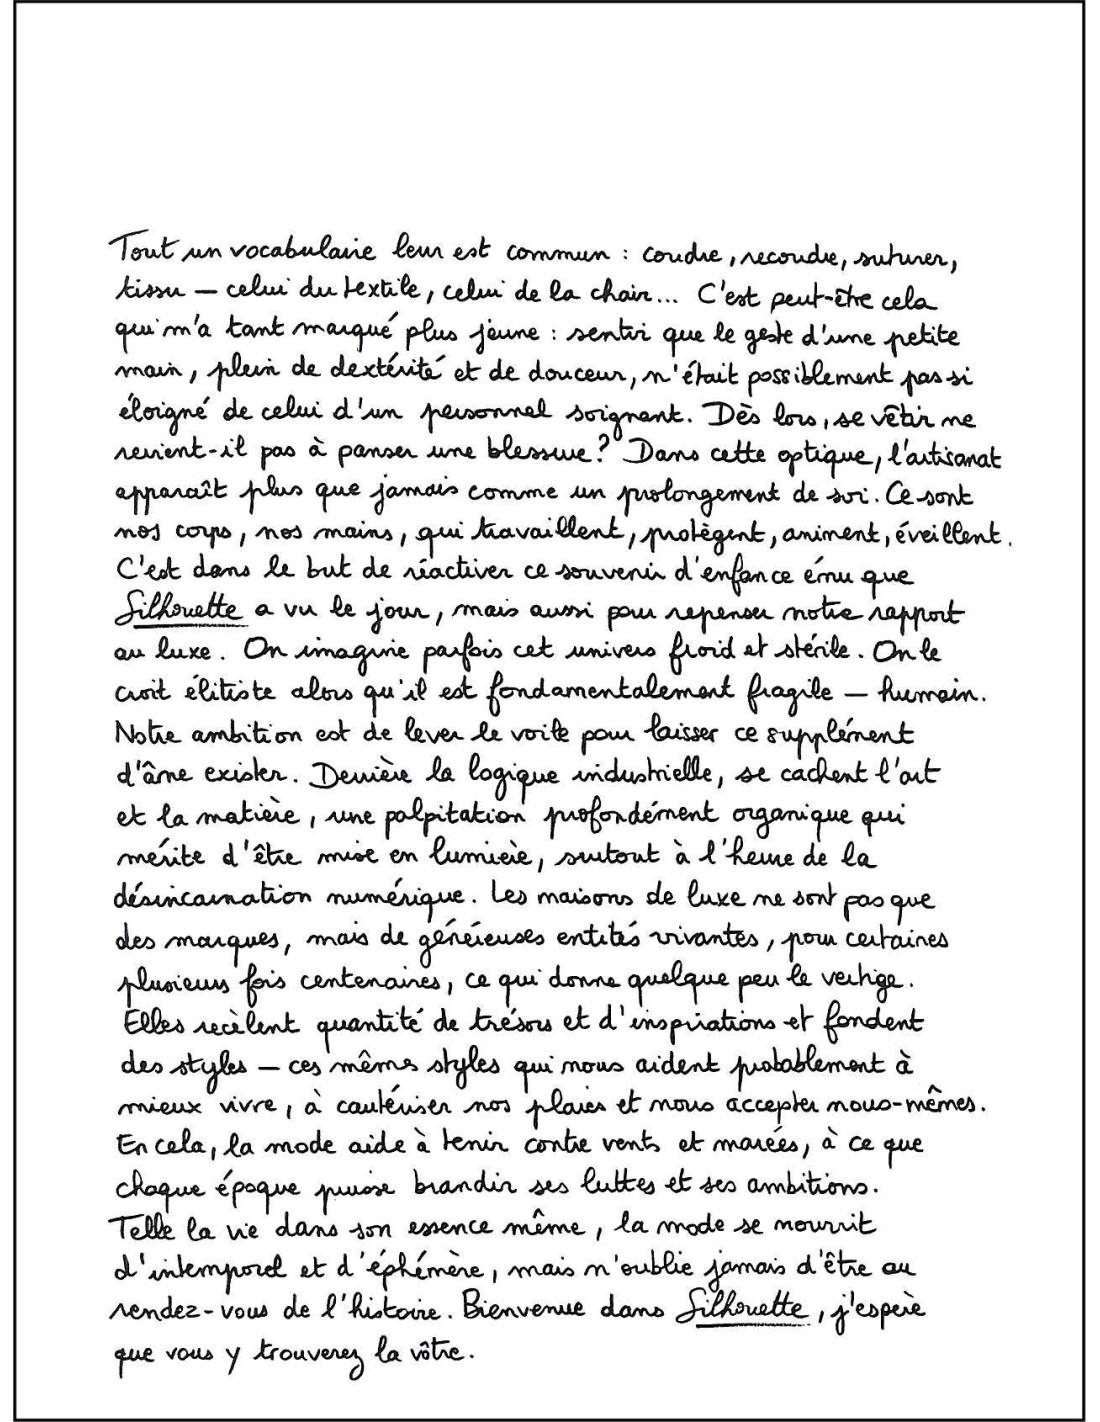 Tout un vocabulaire leur est commun : coudre, recoudre, suturer,
tissu — celui du textile, celui de la chair... C'est peut-être cela
qui m'a tant marqué plus jeune : sentir que le geste d'une petite
main, plein de dextérité et de douceur, n'était possiblement pas si
éloigné de celui d'un personnel soignant. Dès lors, se vêtir ne
revient-il pas à panser une blessure ? Dans cette optique, l'artisanat
apparaît plus que jamais comme un prolongement de soi. Ce sont
nos corps, nos mains, qui travaillent, protègent, animent, éveillent.
C'est dans le but de réactiver ce souvenir d'enfance ému que
Silhouette a vu le jour, mais aussi pour repenser notre rapport
au luxe. On imagine parfois cet univers froid et stérile. On le
croit élitiste alors qu'il est fondamentalement fragile — humain.
Notre ambition est de lever le voile pour laisser ce supplément
d'âme exister. Derrière la logique industrielle, se cachent l'art
et la matière, une palpitation profondément organique qui
mérite d'être mise en lumière, surtout à l'heure de la
désincarnation numérique. Les maisons de luxe ne sont pas que
des marques, mais de généreuses entités vivantes, pour certaines
plusieurs fois centenaires, ce qui donne quelque peu le vertige.
Elles recèlent quantité de trésors et d'inspirations et fondent
des styles — ces mêmes styles qui nous aident probablement à
mieux vivre, à cautériser nos plaies et nous accepter nous-mêmes.
En cela, la mode aide à tenir contre vents et marées, à ce que
chaque époque puisse brandir ses luttes et ses ambitions.
Telle la vie dans son essence même, la mode se nourrit
d'intemporel et d'éphémère, mais n'oublie jamais d'être au
rendez-vous de l'histoire. Bienvenue dans Silhouette, j'espère
que vous y trouverez la vôtre.